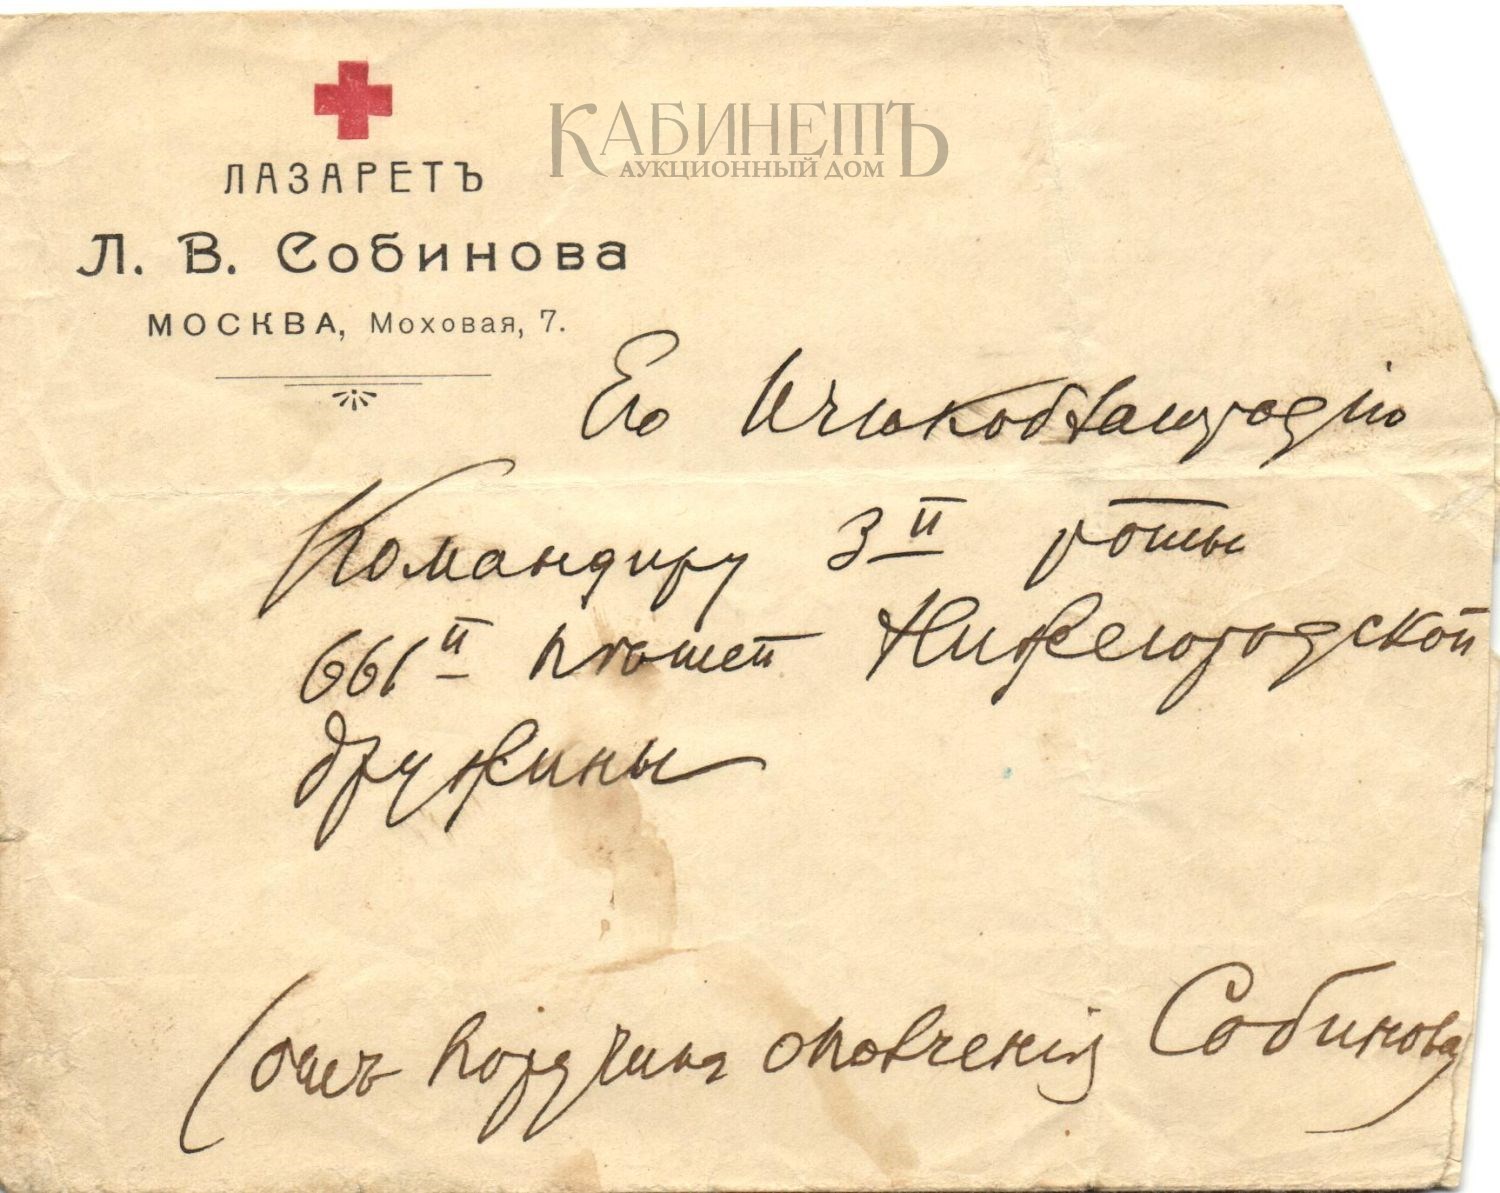 КАБИНЕТЪ
АУКЦИОННЫЙ ДОМ
ЛАЗАРЕТЪ
Л. В. Собинова
МОСКВА, Моховая, 7.
Его
Командиру 3й роты
661й пѣшей Нижегородской
дружины
(отъ ополченія Собинова